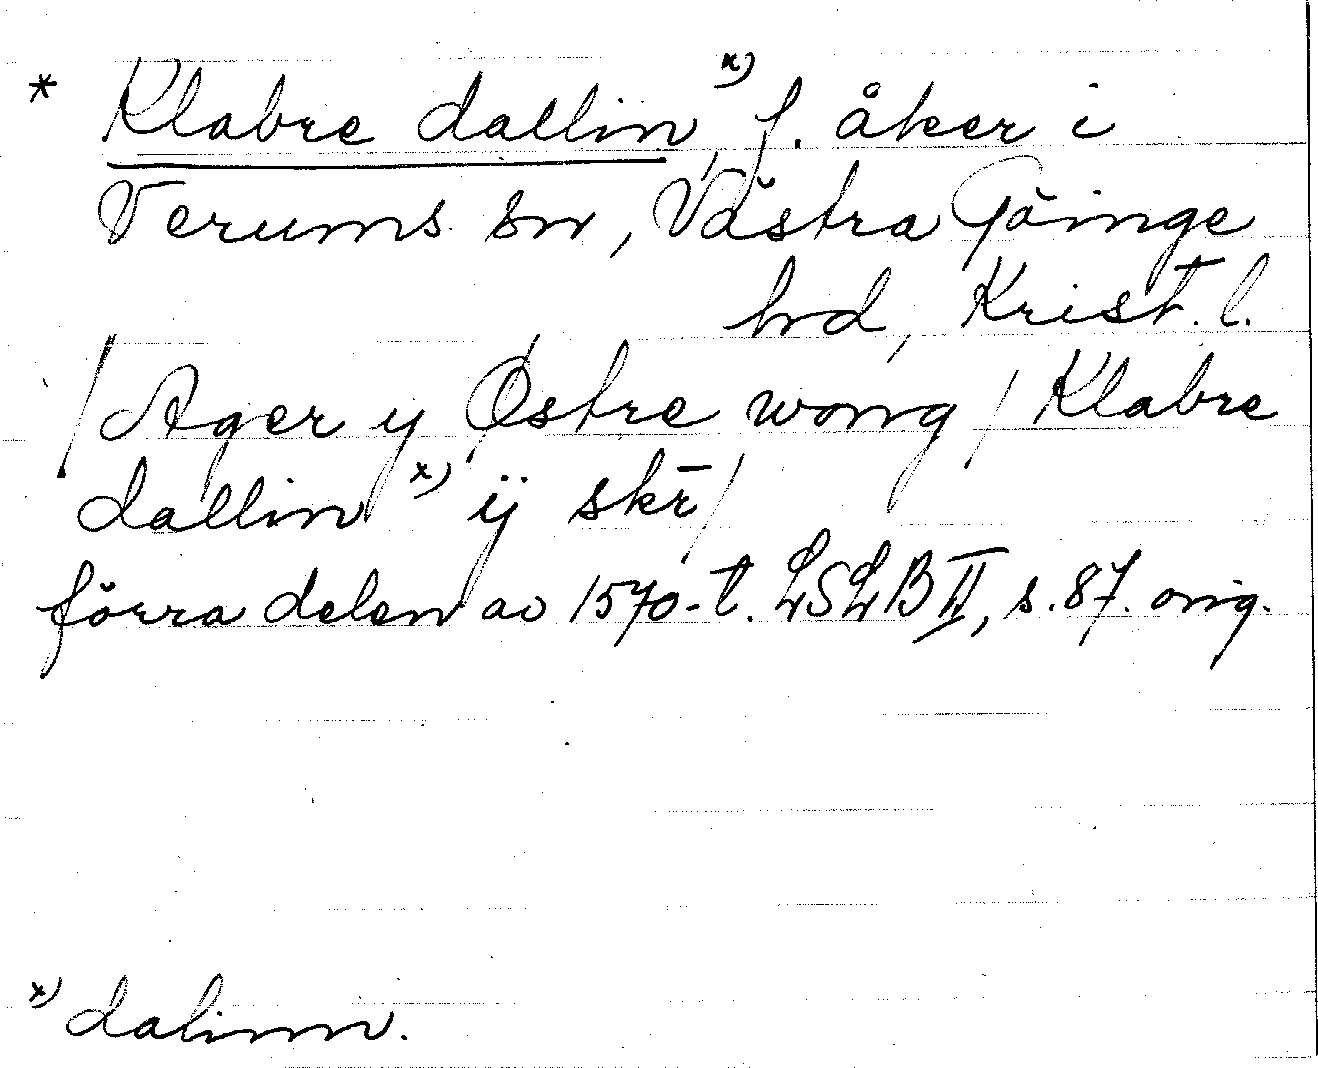 * Klabre dallin x), f. åker i
Verums sn, Västra Göinge
hd, Krist. l.
/Ager y Østre wong/ Klabre
dallin x) ij skr̄/
förra delen av 1570-t. LSLB II, s. 87. orig.
x) dalinn.